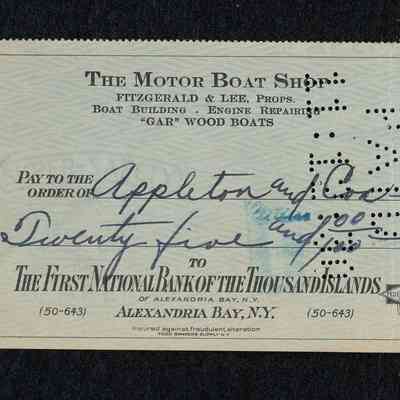 THE MOTOR BOAT SHOP
FITZGERALD & LEE, PROPS.
BOAT BUILDING - ENGINE REPAIRING
"GAR" WOOD BOATS
PAY TO THE
ORDER OF Appleton and Cox
Twenty five and 00/100
TO
THE FIRST NATIONAL BANK OF THE THOUSAND ISLANDS
OF ALEXANDRIA BAY, N.Y.
(50-643) ALEXANDRIA BAY, N.Y. (50-643)
Insured against fraudulent alteration
TODD BANKERS SUPPLY N.Y.